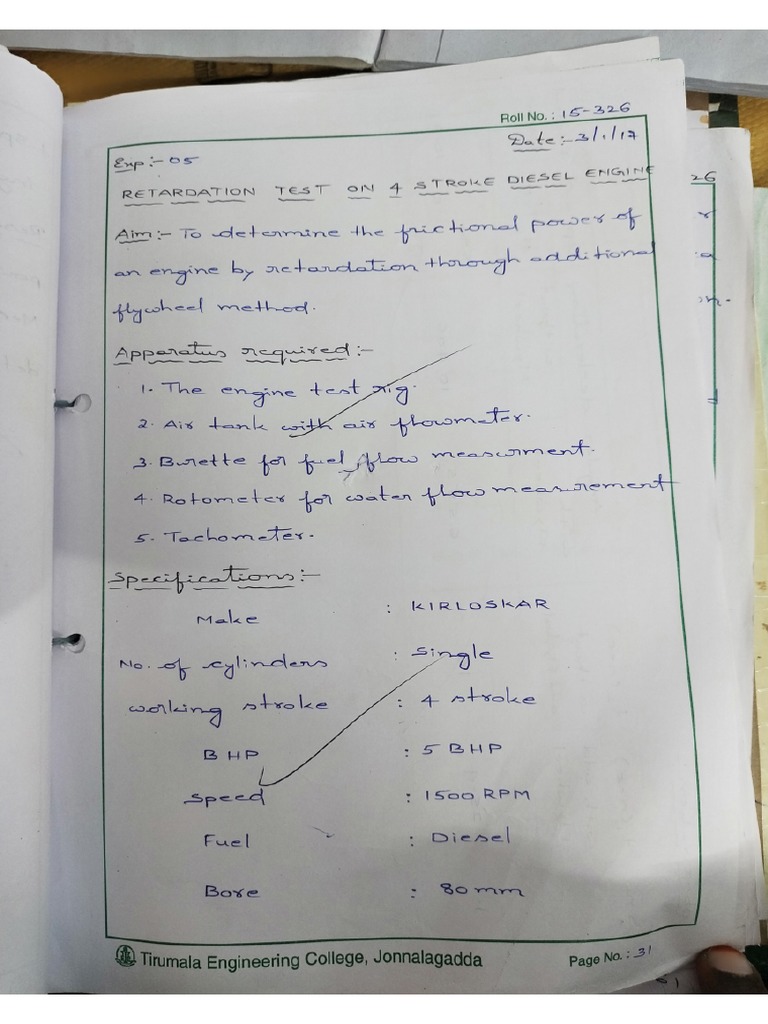 Roll No. : 15-326
Date:- 3/1/17
Exp:- 05
RETARDATION TEST ON 4 STROKE DIESEL ENGINE
Aim:- To determine the frictional power of
an engine by retardation through additional
flywheel method.
Apparatus required:-
1. The engine test rig.
2. Air tank with air flowmeter.
3. Burette for fuel flow measurment.
4. Rotometer for water flow measurement
5. Tachometer.
Specifications:-
Make : KIRLOSKAR
No. of cylinders : Single
working stroke : 4 stroke
BHP : 5 BHP
Speed : 1500 RPM
Fuel : Diesel
Bore : 80 mm
Tirumala Engineering College, Jonnalagadda
Page No. : 31
26